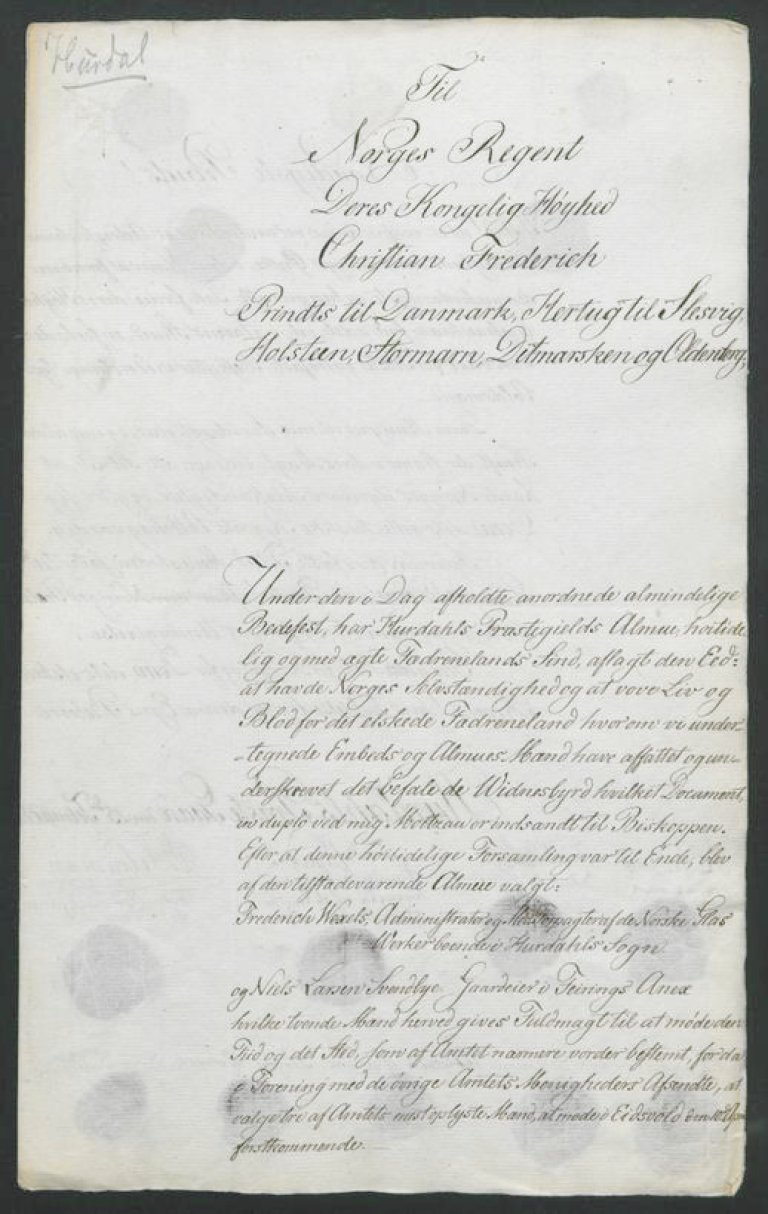 Hurdal
Til
Norges Regent
Deres Kongelig Høyhed
Christian Frederich
Prindts til Danmark, Hertug til Slesvig,
Holsteen, Stormarn, Ditmarsken og Oldenborg,
Under den i Dag afholdte anordnede almindelige
Bedefest, har Hurdahls Præstegields Almue, høitide
lig og med ægte Fædrenelands Sind, aflagt den Eed:
at hævde Norges Selvstændighed og at vove Liv og
Blod for det elskede Fædreneland hvorom vi under-
-tegnede Embeds og Almues-Mænd have affattet og un-
derskrevet det befalede Widnesbyrd hvilket Document,
in duplo ved mig Moltzau er indsandt til Biskoppen.
Efter at denne høitidelige Forsamling var til Ende, blev
af den tilstædeværende Almue valgt:
Frederich Wexels, Administrator og Medforpagter af de Norske Glas
Werker boende i Hurdahls Sogn
og Niels Larsen Svendbye Gaardeier i Feirings Anex
hvilke tvende Mænd herved gives Fuldmagt til at møde den
Tid og det Sted, som af Amtet nærmere vorder bestemt, for da
i Forening med de øvrige Amtets Menigheders Afsendte, at
vælge tre af Amtets mest oplyste Mænd, at møde i Eidsvold den 10de Apr
førstkommende.